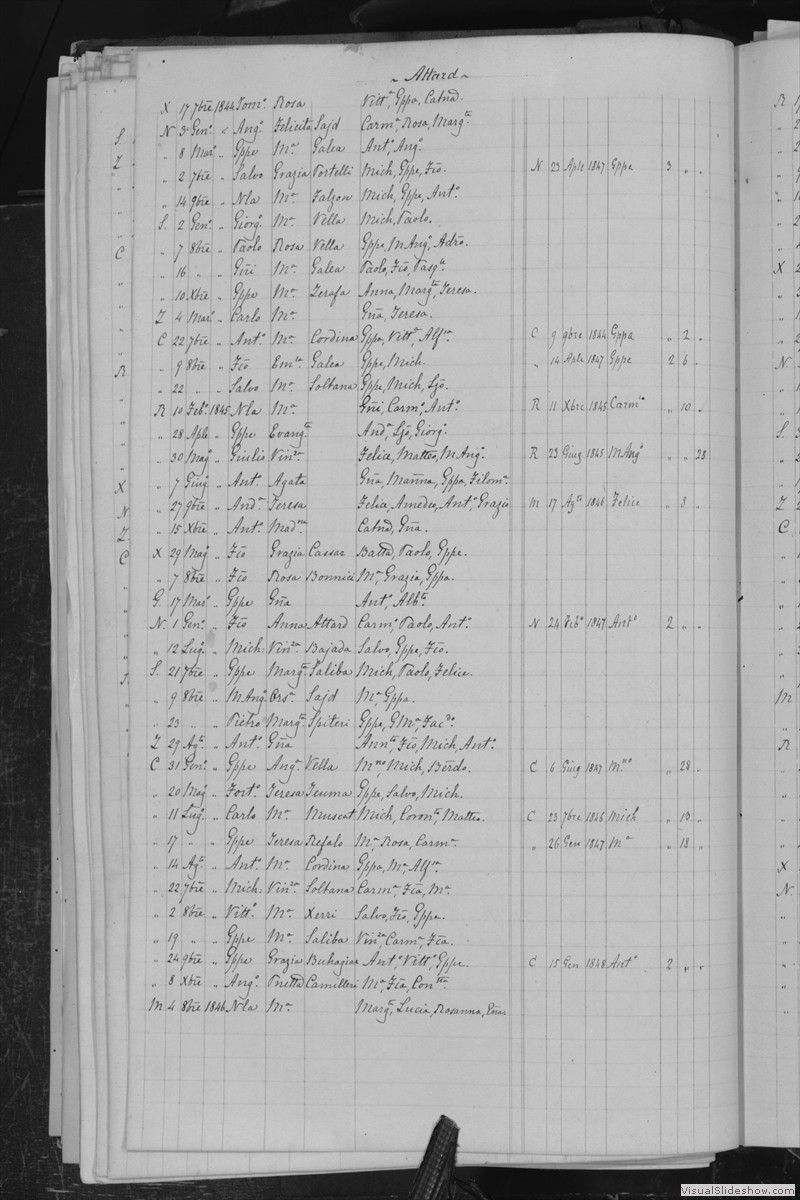 ~ Attard ~
X 17 7bre 1844 Tom.º Rosa Vitt.ª, Gppa, Catnd.
N 3 Gen.º „ Ang.º Felicita Sajd Carm.ª, Rosa, Marg.ta
„ 8 Mar.º „ Gppe M.ª Galea Ant.º, Ang.º
„ 2 7bre „ Salvo Grazia Portelli Mich, Gppe, Fčo. N 23 Aple 1847 Gppe 3 „ „
„ 14 9bre „ Nla M.ª Falzon Mich, Gppe, Ant.º
S. 2 Gen.º „ Giorg.º M.ª Vella Mich, Paolo.
„ 7 8bre „ Paolo Rosa Vella Gppe, M Ang.º, Adrō.
„ 16 „ „ Gñi M.ª Galea Paolo, Fčo, Pasq.le
„ 10 Xbre „ Gppe M.ª Zerafa Anna, Marg.ta, Teresa.
Z 4 Mar.º „ Carlo M.ª Gña, Teresa.
C 22 7bre „ Ant.º M.ª Cordina Gppa, Vitt.ª, Alf.sa C 9 9bre 1844 Gppa „ 2 „
„ 9 8bre „ Fčo Em.la Galea Gppe, Mich. „ 14 Aple 1847 Gppe 2 6 „
„ 22 „ „ Salvo M.ª Soltana Gppe, Mich, Ljō.
R 10 Feb.º 1845 Nla M.ª Gñi, Carm.º, Ant.º R 11 Xbre 1845 Carm.º „ 10 „
„ 28 Aple „ Gppe Evang.ta And.ª, Ljō, Giorg.º
„ 30 Mag.º „ Giulio Vin.za Felice, Matteo, M Ang.º R 23 Giug 1845 M Ang.º „ „ 25
„ 7 Giug „ Ant.º Agata Gña, Mariña, Gppa, Filom.ª
„ 27 9bre „ And.ª Teresa Felice, Amedeo, Ant.º, Grazio M 17 Ag.to 1846 Felice „ 3 „
„ 15 Xbre „ Ant.º Mad.na Catnd, Gña.
X 29 Mag „ Fčo Grazia Cassar Battā, Paolo, Gppe.
„ 7 8bre „ Fčo Rosa Bonnici M.ª, Grazia, Gppa.
G. 17 Mar.º „ Gppe Gña Ant.º, Alb.ta
N. 1 Gen.º „ Fčo Anna Attard Carm.º, Paolo, Ant.º N 24 Feb.º 1847 Ant.º 2 „ „
„ 12 Lug.º „ Mich: Vin.za Bajada Salvo, Gppe, Fčo.
S. 21 7bre „ Gppe Marg.ta Saliba Mich, Paolo, Felice.
„ 9 8bre „ M Ang.º Ors.ª Sajd M.ª, Gppa.
„ 23 „ „ Pietro Marg.ta Spiteri Gppe, G M.ª, Fac.do
Z 29 Ag.to „ Ant.º Gña Ann.ta, Fčo, Mich, Ant.º
C 31 Gen.º „ Gppe Ang.ª Vella M.no, Mich, Berdo. C 6 Giug 1847 M.no „ 28 „
„ 20 Mag „ Fort.º Teresa Teuma Gppe, Salvo, Mich.
„ 11 Lug.º „ Carlo M.ª Muscat Mich, Coron.ta, Matteo. C 23 7bre 1845 Mich „ 13 „
„ 17 „ „ Gppe Teresa Refalo M.ª, Rosa, Carm.ª „ 26 Gen 1847 M.ª „ 18 „
„ 14 Ag.to „ Ant.º M.ª Cordina Gppa, M.ª, Alf.sa
„ 22 7bre „ Mich: Vin.za Soltana Carm.ª, Fča, M.ª
„ 2 8bre „ Vitt.º M.ª Xerri Salvo, Fčo, Gppe.
„ 19 „ „ Gppe M.ª Saliba Vin.za, Carm.ª, Fča.
„ 24 9bre „ Gppe Grazia Buhagiar Ant.º, Vitt.º, Gppe. C 15 Gen 1848 Ant.º 2 „ „
„ 8 Xbre „ Ang.º Camilleri M.ª, Fča, Con.tta
M 4 8bre 1846 Nla M.ª Marg.ta, Lucia, Rosanna, Gña.
VisualSlideshow.com